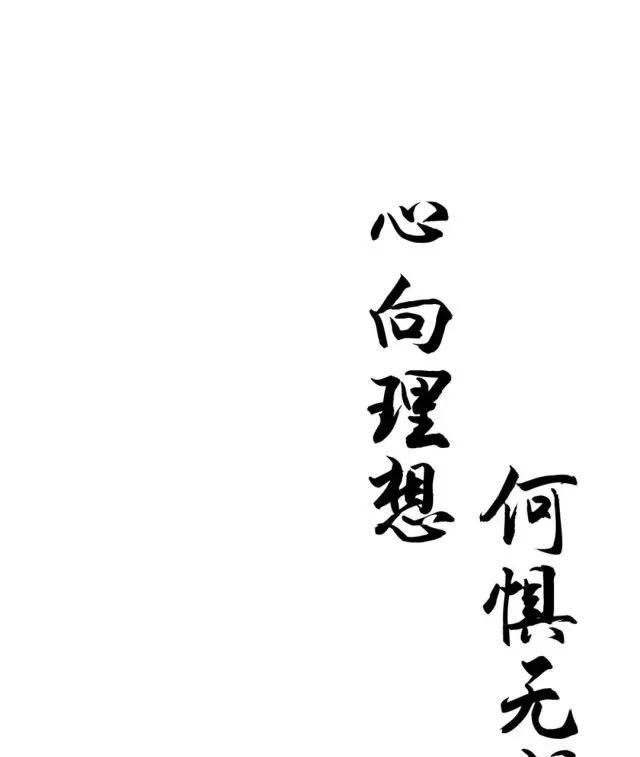 心向理想
何惧无